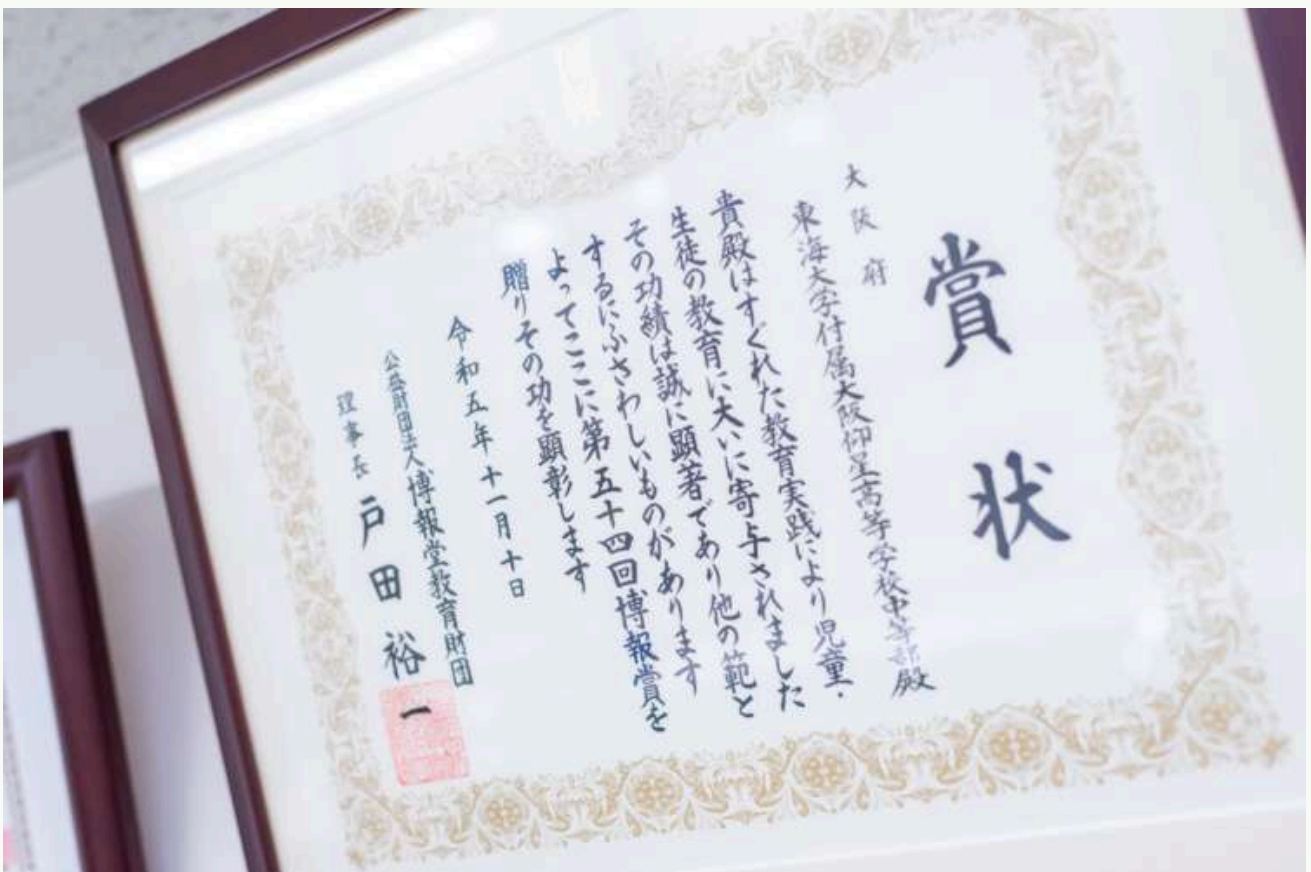 賞状
大阪府
東海大学付属大阪仰星高等学校中等部殿
貴殿はすぐれた教育実践により児童・
生徒の教育に大いに寄与されました
その功績は誠に顕著であり他の範と
するにふさわしいものがあります
よってここに第五十四回博報賞を
贈りその功を顕彰します
令和五年十一月十日
公益財団法人博報堂教育財団
理事長 戸田裕一